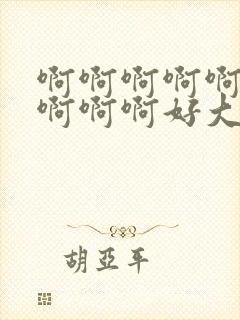 啊啊啊啊啊
啊啊啊好大
胡亚平